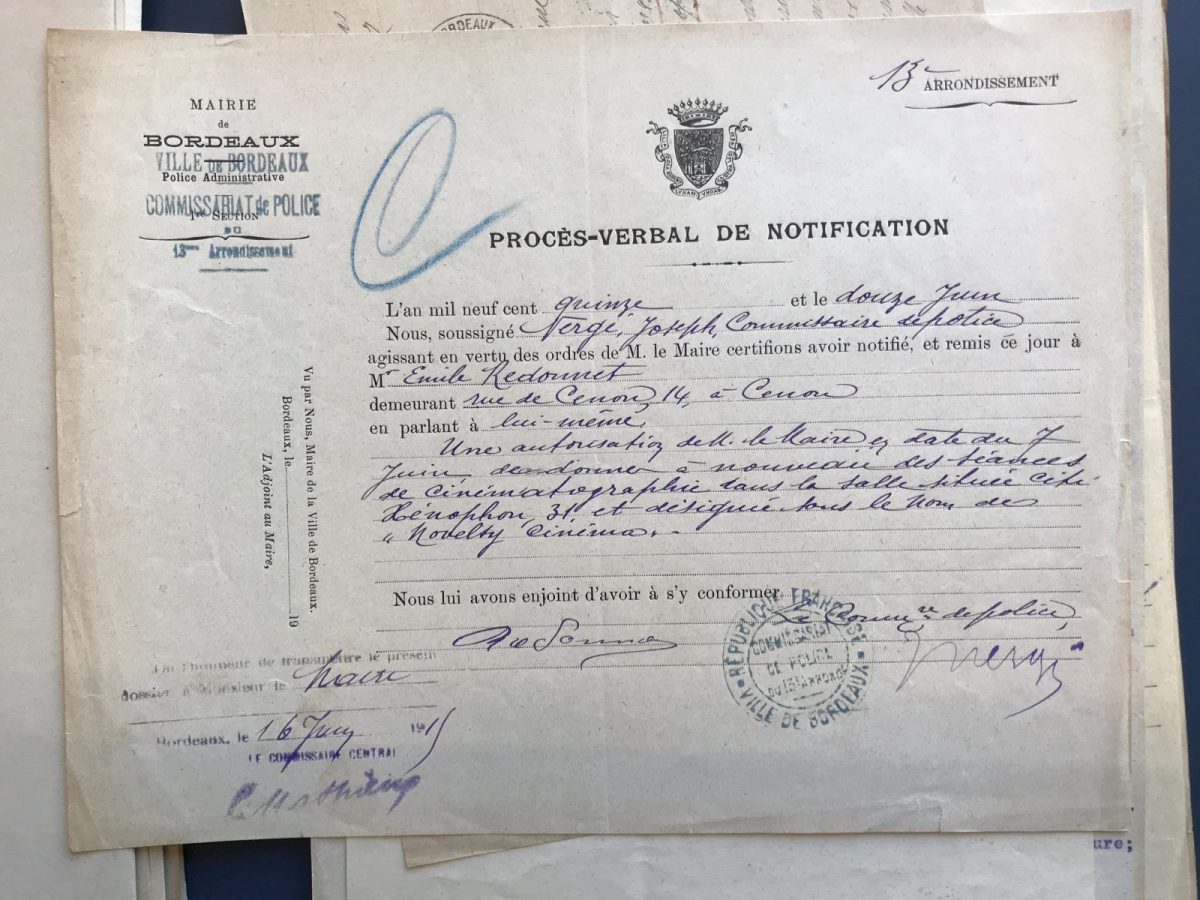 BORDEAUX
13e ARRONDISSEMENT
MAIRIE
de
BORDEAUX
VILLE DE BORDEAUX
Police Administrative
COMMISSARIAT de POLICE
1re SECTION
DU
13me Arrondissement
PROCÈS-VERBAL DE NOTIFICATION
L'an mil neuf cent quinze et le douze Juin
Nous, soussigné Vergé, Joseph, Commissaire de police
agissant en vertu des ordres de M. le Maire certifions avoir notifié, et remis ce jour à
Mr Emile Redonnet
demeurant rue de Cenon, 14, à Cenon
en parlant à lui-même,
Une autorisation de M. le Maire en date du 7
Juin, de donner à nouveau des séances
de cinématographie dans la salle située cité
Xénophon, 31 et désignée sous le nom de
"Novelty Cinéma.-
Nous lui avons enjoint d'avoir à s'y conformer.
Le Comm.re de police,
Vergé
RÉPUBLIQUE FRANÇAISE
COMMISSARIAT
DE POLICE
DU 13e ARRONDt
VILLE DE BORDEAUX
Vu par Nous, Maire de la Ville de Bordeaux.
Bordeaux, le 19
L'Adjoint au Maire,
J'ai l'honneur de transmettre le présent
dossier à Monsieur le Maire
Bordeaux, le 16 Juin 1915
LE COMMISSAIRE CENTRAL
ure;